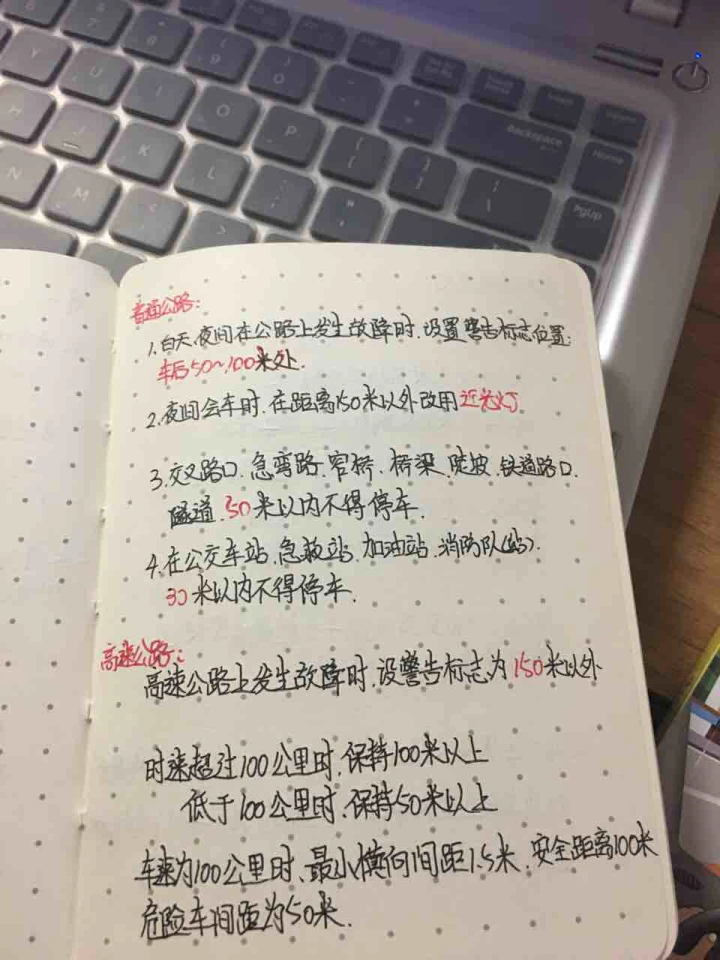 U
I
O
P
J
K
L
N
M
Backspace
Home
PgUp
普通公路:
1.白天、夜间在公路上发生故障时,设置警告标志位置:
车后50~100米处.
2.夜间会车时,在距离150米以外改用近光灯
3.交叉路口、急弯路、窄桥、桥梁、陡坡、铁道路口、
隧道,50米以内不得停车.
4.在公交车站、急救站、加油站、消防队(站)
30米以内不得停车.
高速公路:
高速公路上发生故障时,设警告标志为150米以外
时速超过100公里时,保持100米以上
低于100公里时,保持50米以上
车速为100公里时、最小横向间距1.5米,安全距离100米
危险车间距为50米.